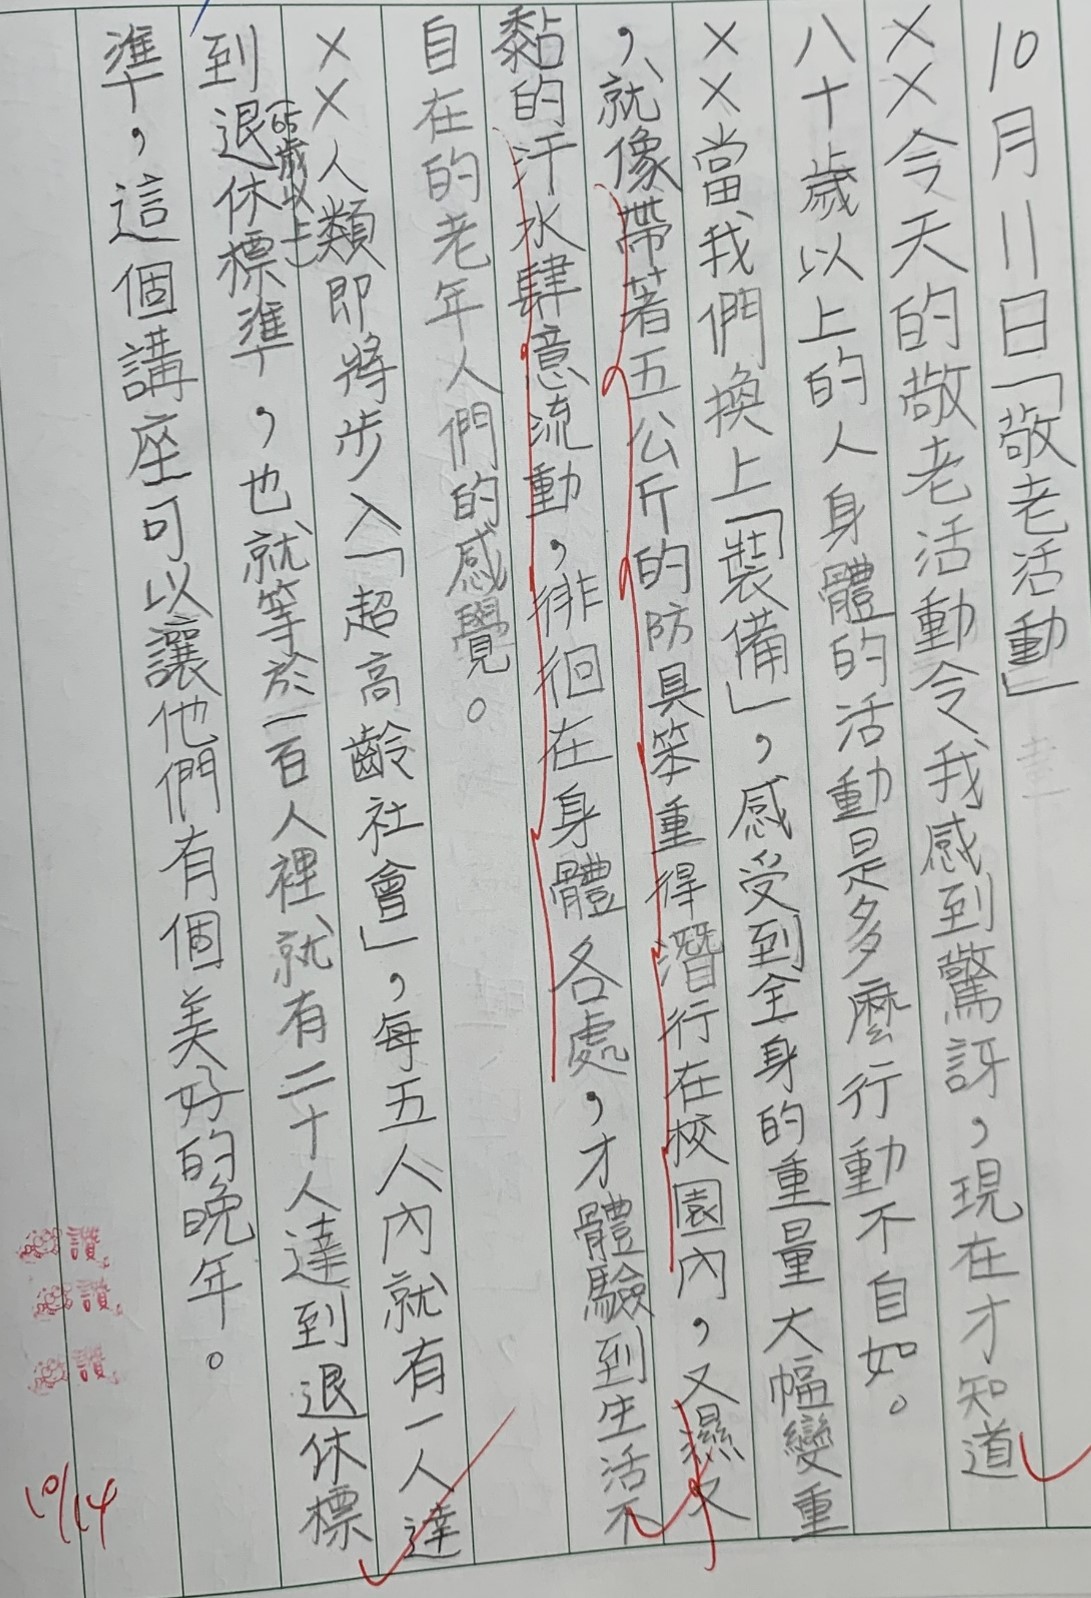 10月11日「敬老活動」
××今天的敬老活動令我感到驚訝，現在才知道
八十歲以上的人身體的活動是多麼行動不自如。
××當我們換上「裝備」，感受到全身的重量大幅變重
，就像帶著五公斤的防具笨重得潛行在校園內，又濕又
黏的汗水肆意流動，徘徊在身體各處，才體驗到生活不
自在的老年人們的感覺。
××人類即將步入「超高齡社會」，每五人內就有一人達
到退休標準，也就等於一百人裡就有二十人達到退休標
(65歲以上)
準，這個講座可以讓他們有個美好的晚年。
讚
讚
讚
10/14